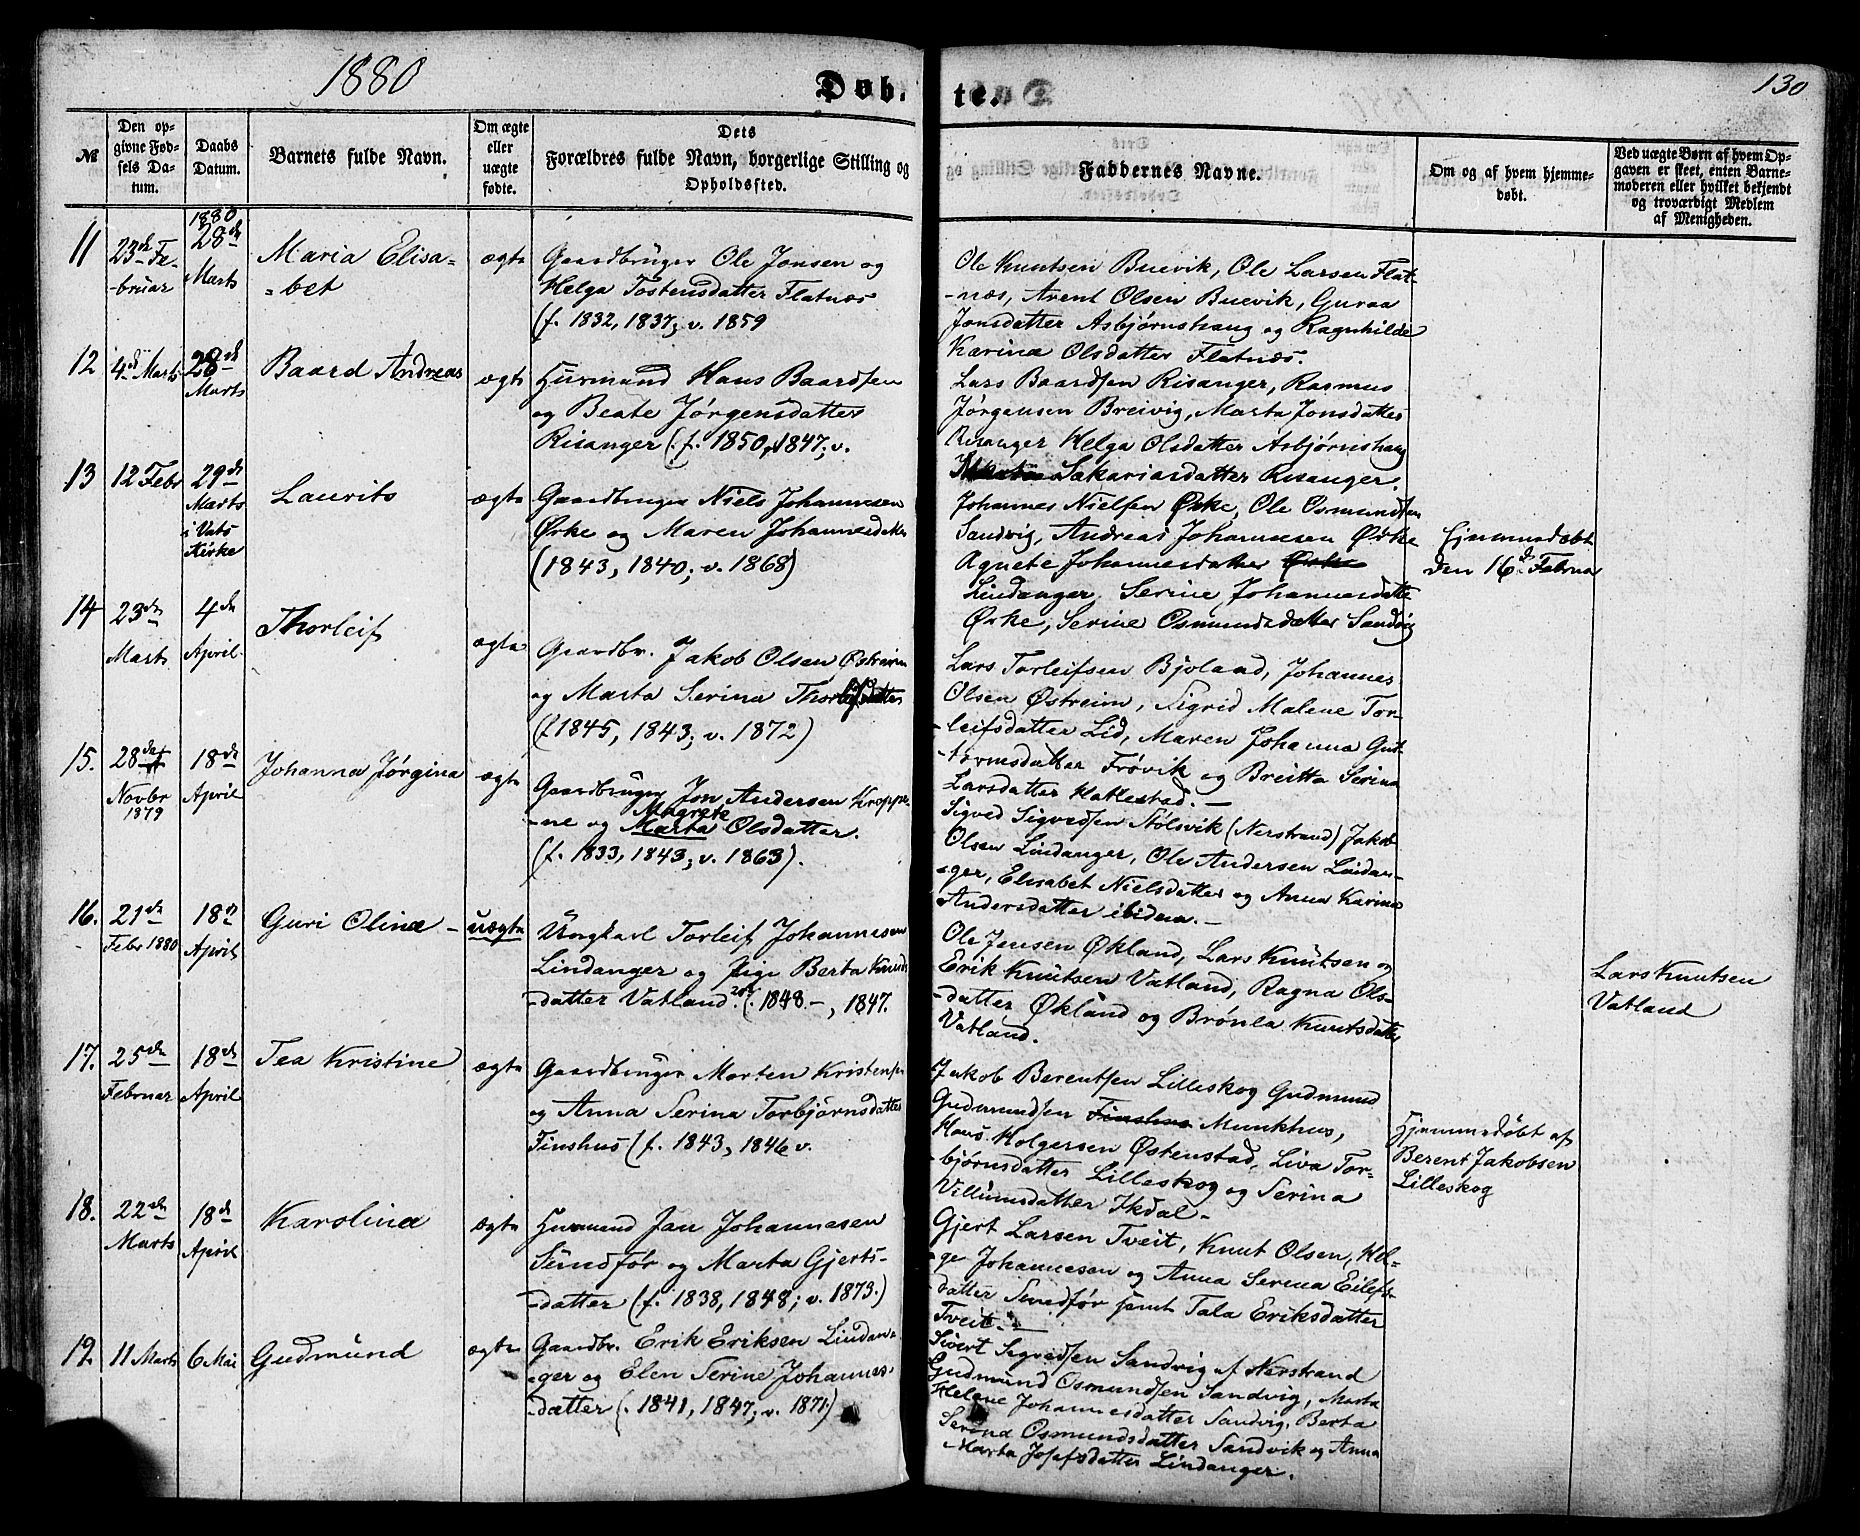 1880
Døb. te.
130
№
Den op-
givne Fød-
sels Da-
tum.
Daabs
Datum.
Barnets fulde Navn.
Om ægte
eller
uægte
fødte.
Dets
Forældres fulde Navn, borgerlige Stilling og
Opholdssted.
Faddernes Navne.
Om og af hvem hjemme-
døbt.
Ved uægte Børn af hvem Op-
gaven er skeet, enten Barne-
moderen eller hvilket bekjendt
og troværdigt Medlem
af Menigheden.
11
23de Fe-
-bruar
1880
28de
Marts
Maria Elisa-
=bet
ægte
Gaardbruger Ole Jonsen og
Helga Tostensdatter Flatnæs
(f. 1832, 1837; v. 1859
Ole Knutsen Buevik, Ole Larsen Flat-
-næs, Arent Olsen Buevik, Guroa
Jonsdatter Asbjørnshaug og Ragnhilde
Karina Olsdatter Flatnæs.
12
4de Marts
28de
Marts
Baard Andreas
ægte
Husmand Hans Baardsen
og Beate Jørgensdatter
Risanger (f. 1850, 1847; v.
Lars Baardsen Risanger, Rasmus
Jørgensen Breivig, Marta Jonsdatter
Risanger Helga Olsdatter Asbjørnshaug
Sakariasdatter Risanger.
13
12 Febr
29de
Marts
i Vats
Kirke
Laurits
ægte
Gaardbruger Niels Johannesen
Ørke og Maren Johannesdatter
(1843, 1840; v. 1868)
Johannes Nielsen Ørke, Ole Osmundsen
Sandvig, Andreas Johannesen Ørke
Agnete Johannesdatter Ørke
Lindanger, Serine Johannesdatter
Ørke, Serine Osmundsdatter Sandvig
Hjemmedøbt
den 16de Februar
14
23de
Marts
4de
April
Thorleif
ægte
Gaardbr. Jakob Olsen Østreim
og Marta Serina Thorleifsdatter
(f 1845, 1843; v. 1872)
Lars Torleifsen Bjoland, Johannes
Olsen Østreim, Sigrid Malene Tor-
-leifsdatter Lid, Maren Johanna Gut-
-tormsdatter Frøvik og Breitta Serina
Larsdatter Hatlestad. -
15.
28de
Novbr
1879
18de
April
Johanna Jørgina
ægte
Gaardbruger Jon Andersen Kroppe-
Magrete
-ne og Marta Olsdatter.
(f. 1833, 1843; v. 1863).
Sigved Sigvedsen Stølsvik (Nerstrand) Jakob
Olsen Lindanger, Ole Andersen Lindan-
-ger, Elisabet Nielsdatter og Anna Karina
Andersdatter ibidem. -
16.
21de
Febr 1880
18de
April
Guri Olina -
uægte
Ungkarl Torleif Johannesen
Lindanger og Pige Berta Knuds-
-datter Vatland. (1848 -, 1847.
Ole Jensen Økland, Lars Knutsen og
Erik Knutsen Vatland, Ragna Ols-
-datter Økland og Brønla Knutsdatter
Vatland.
Lars Knutsen
Vatland
17.
25de
Februar
18de
April
Tea Kristine
ægte
Gaardbruger Morten Kristensen
og Anna Serina Torbjørnsdatter
Finshus (f. 1843, 1846 v.
Jakob Berentsen Lilleskog Gudmund
Gudmundsen Finshus Munkhus,
Hans Holgersen Østenstad, Liva Tor-
-bjørnsdatter Lilleskog og Serina
Villumsdatter Ikdal -
Hjemmedøbt af
Berent Jakobsen
Lilleskog
18.
22de
Marts
18de
April
Karolina
ægte
Husmand Jan Johannesen
Sundfør og Marta Gjerts-
-datter (f. 1838, 1848; v. 1873.)
Gjert Larsen Tveit, Knut Olsen, Hel-
-ge Johannesen og Anna Serena Eilefs-
-datter Sundfør samt Tala Eriksdatter
Tveit. -
19.
11 Marts
6 Mai
Gudmund
ægte
Gaardbr. Erik Eriksen Lindan-
-ger og Elen Serine Johannes-
-datter (. 1841, 1847; v. 1871)
Sivert Segvedsen Sandvig af Nerstrand
Gudmund Osmundsen Sandvig, Marta
Helene Johannesdatter Sandvig, Berta
Serina Osmundsdatter Sandvik og Anna
Marta Josefsdatter Lindanger.